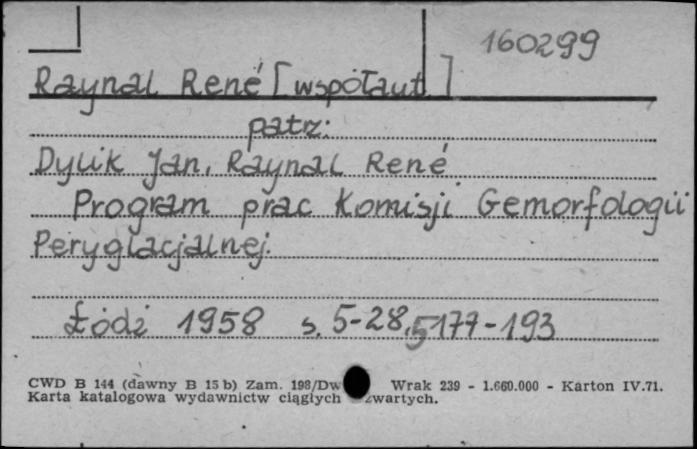 160299
Raynal René [współaut.]
patrz:
Dylik Jan, Raynal René
Program prac Komisji Gemorfologii
Peryglacjalnej.
Łódź 1958 s. 5-28, 5177-193
CWD B 144 (dawny B 15 b) Zam. 198/Dw Wrak 239 - 1.660.000 - Karton IV.71.
Karta katalogowa wydawnictw ciągłych zwartych.